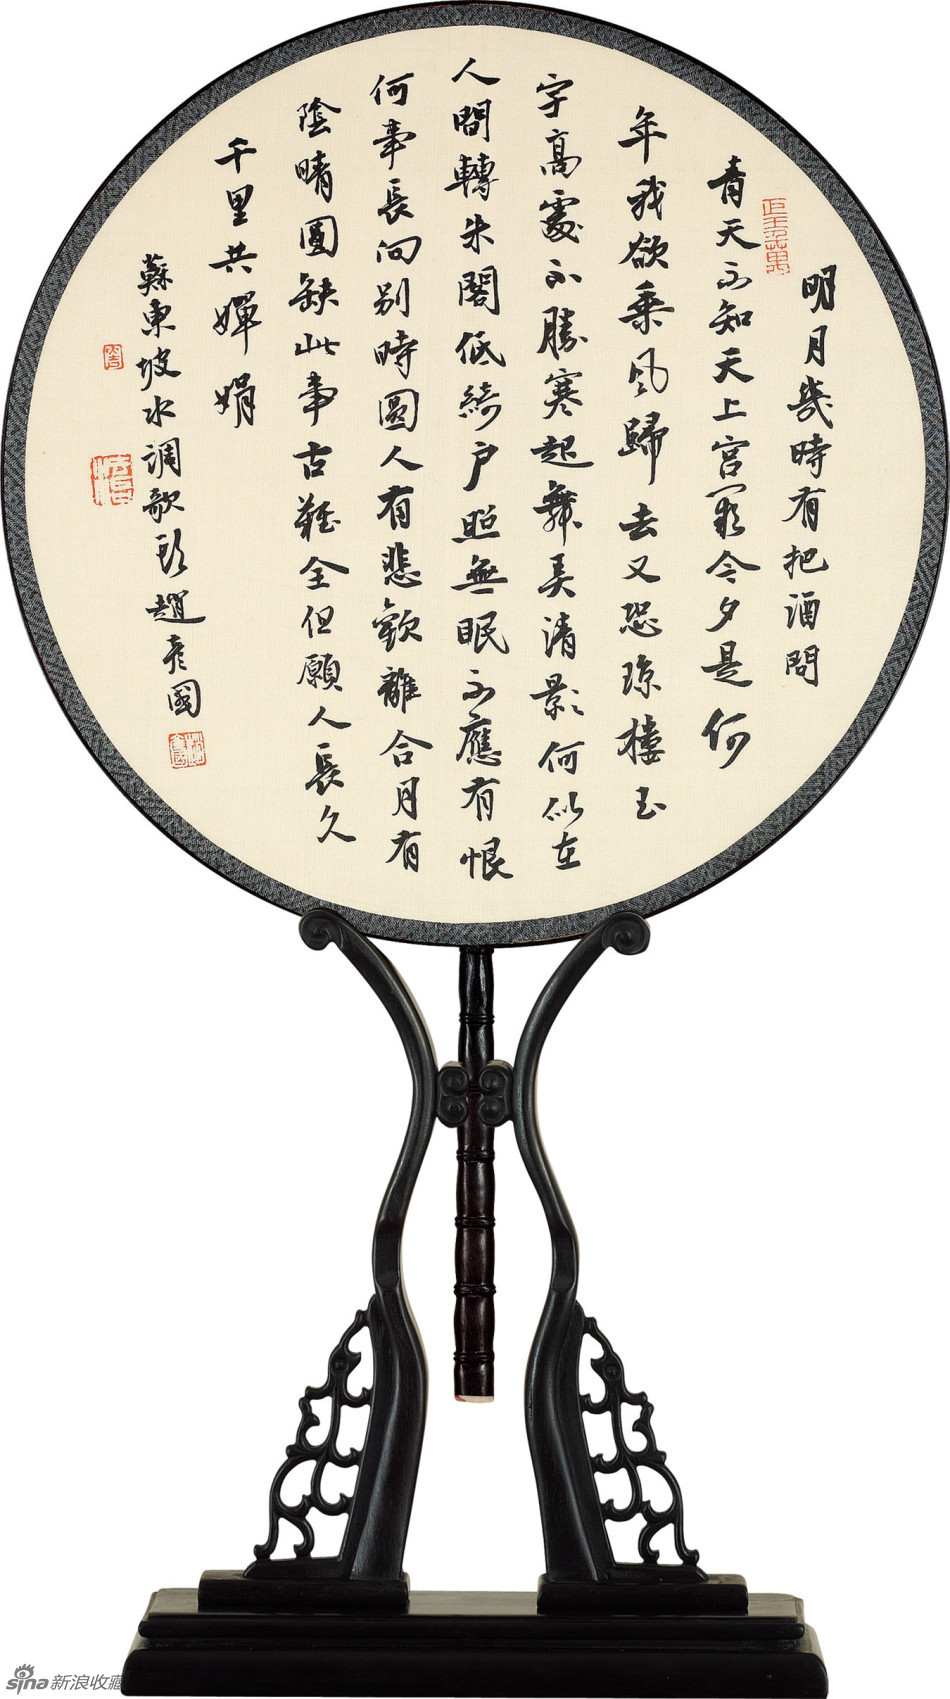 明月幾時有把酒問
青天不知天上宮闕今夕是何
年我欲乘風歸去又恐琼樓玉
宇高處不勝寒起舞弄清影何似在
人間轉朱閣低綺户照無眠不應有恨
何事長向别時圓人有悲歡離合月有
陰晴圓缺此事古難全但願人長久
千里共嬋娟
蘇東坡水調歌頭趙彦國
sina新浪收藏